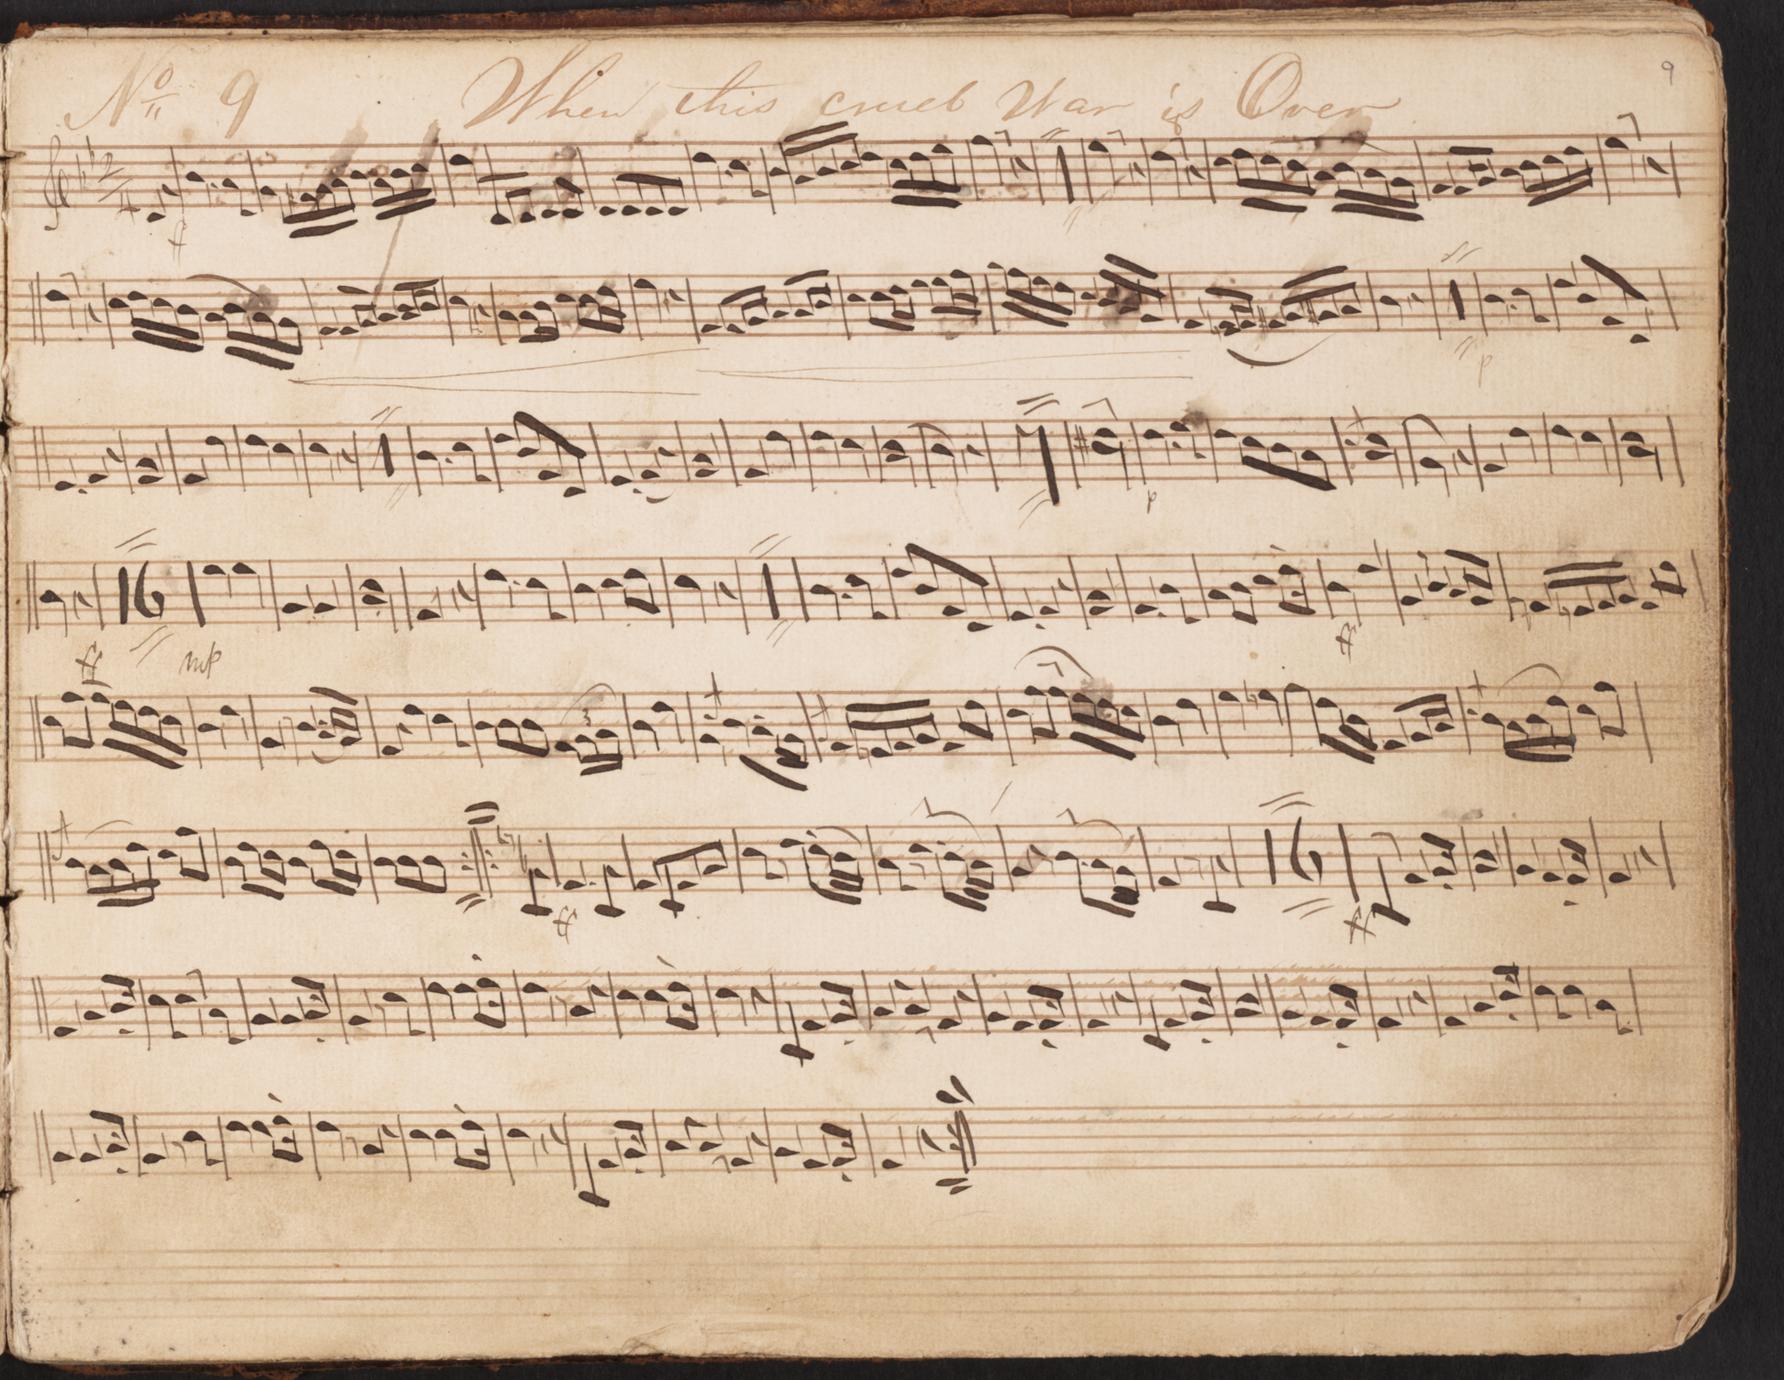 No 9 When this cruel War is Over
9
f
p
p
16
ff mp ff
16
ff ff